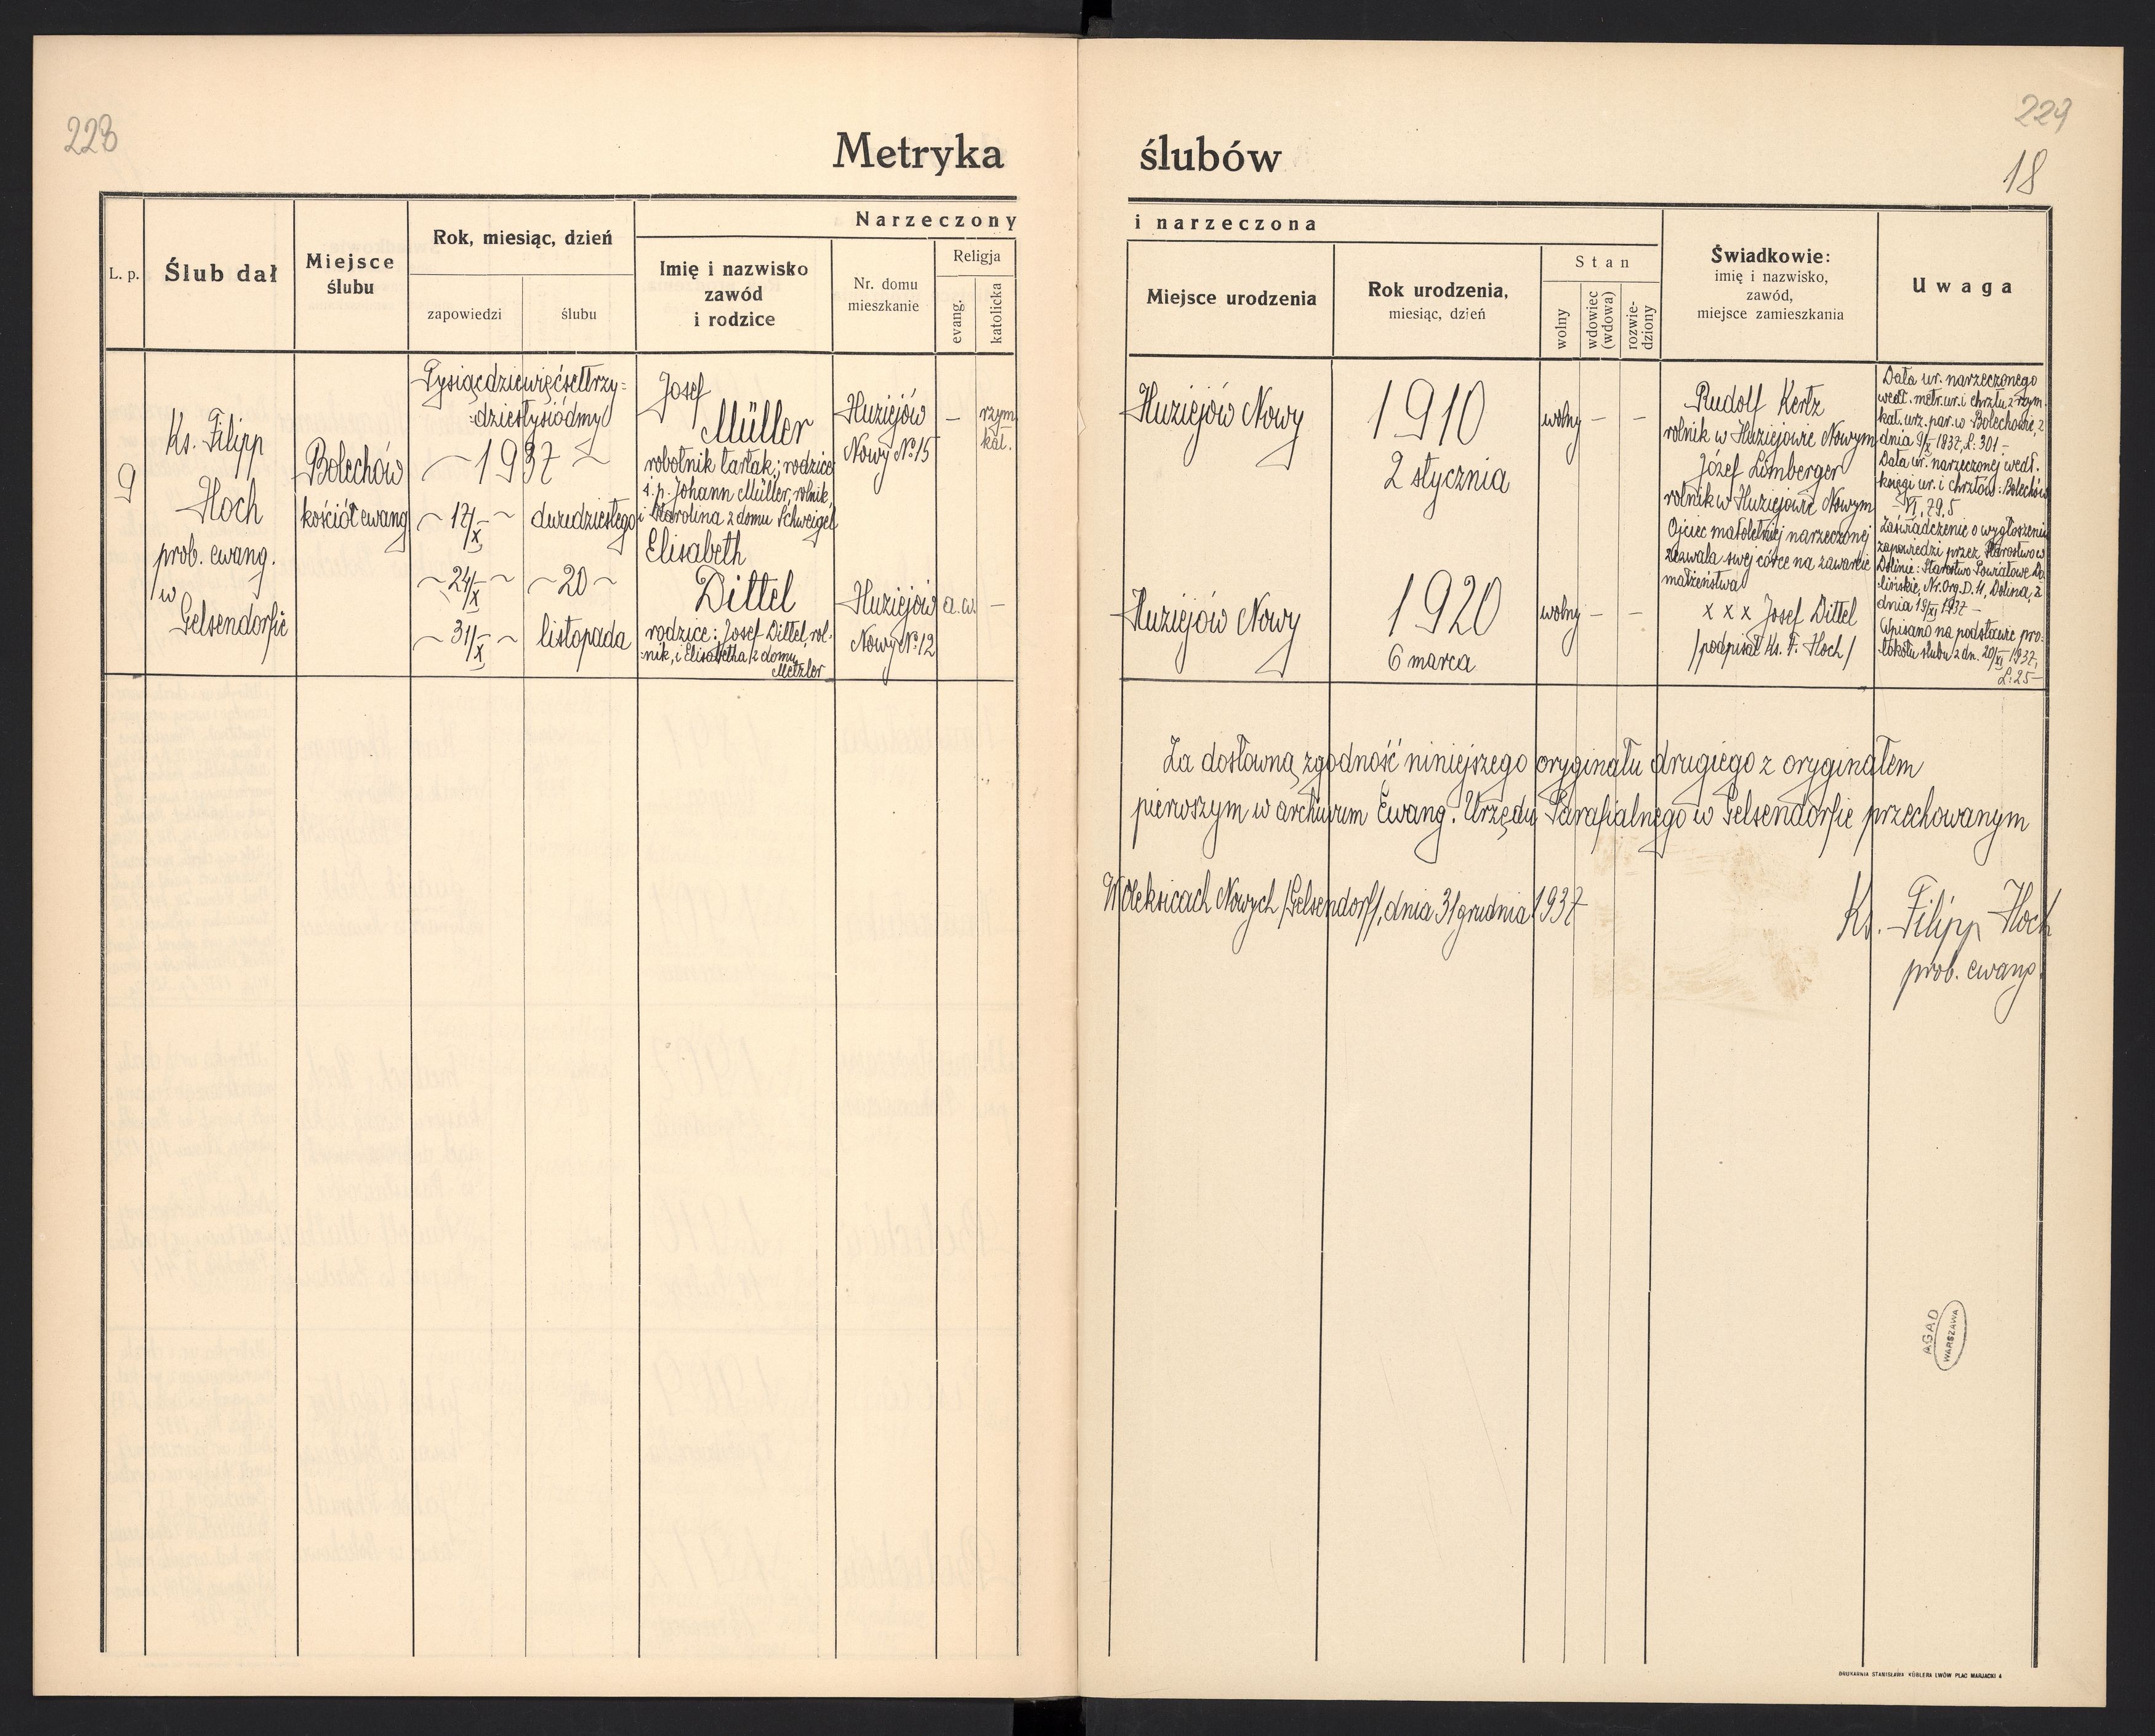 223
229
18
Metryka ślubów
L. p.
Ślub dał
Miejsce
ślubu
Rok, miesiąc, dzień
zapowiedzi
ślubu
Narzeczony
i narzeczona
Imię i nazwisko
zawód
i rodzice
Nr. domu
mieszkanie
Religja
evang.
katolicka
Miejsce urodzenia
Rok urodzenia,
miesiąc, dzień
Stan
wolny
wdowiec
(wdowa)
rozwie-
dziony
Świadkowie:
imię i nazwisko,
zawód,
miejsce zamieszkania
Uwaga
9
Ks. Filipp
Hoch
prob. ewang.
w
Gelsendorfie
Bolechów
kościół ewang
Tysiącdziewięćsettrzy=
=dziestysiódmy
1937
17/X
24/X
31/X
dwudziestego
20
listopada
Josef
Müller
robotnik tartak; rodzice
ś. p. Johann Müller, rolnik,
i Karolina z domu Schweigel
Elisabeth
Dittel
rodzice: Josef Dittel, rol-
nik, i Elisabetha z domu
Metzler
Huziejów
Nowy No 15
Huziejów
Nowy No 12
–
rzym.
kat.
a.w.
–
Huziejów Nowy
1910
2 stycznia
wolny – –
Huziejów Nowy
1920
6 marca
wolny – –
Rudolf Kertz
rolnik w Huziejowie Nowym
Józef Lomberger
rolnik w Huziejowie Nowym
Ojciec małoletniej narzeczonej
zezwala swej córce na zawarcie
małżeństwa
x x x Josef Dittel
/podpisał Ks. F. Hoch/
Data ur. narzeczonego
wedł. metr. ur. i chrztu z rzym.
kat. urz. par. w Bolechowie, z
dnia 9/X 1937, L. 301 –
Data ur. narzeczonej wedł.
księgi ur. i chrztów: Bolechów
VI, 79, 5
Zaświadczenie o wygłoszeniu
zapowiedzi przez Starostwo w
Dolinie: Starostwo Powiatowe Do-
lińskie, Nr. Org. D. 4, Dolina, z
dnia 19/XI 1937 –
Wpisano na podstawie pro-
tokołu ślubu z dn. 20/XI 1937,
L: 25 –
Za dosłowną zgodność niniejszego oryginału drugiego z oryginałem
pierwszym w archiwum Ewang. Urzędu Parafialnego w Gelsendorfie przechowanym
W Oleksicach Nowych /Gelsendorf/, dnia 31 grudnia 1937
Ks. Filipp Hoch
prob. ewang.
AGAD
WARSZAWA
DRUKARNIA STANISŁAWA KÜBLERA LWÓW PLAC MARJACKI 4